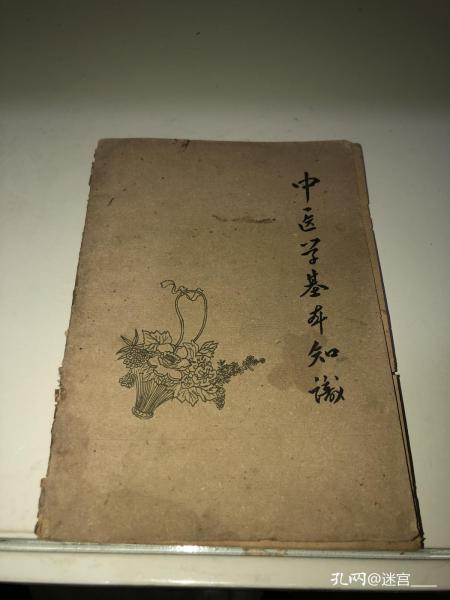 中医学基本知識
孔网@迷宫___